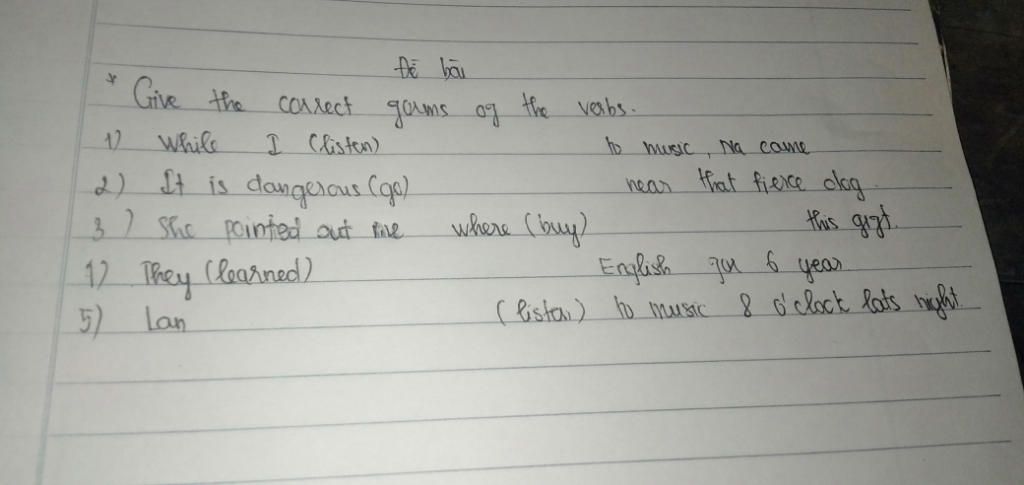 Đề bài
* Give the correct forms of the verbs.
1) While I (listen) to music, Na came
2) It is dangerous (go) near that fierce dog.
3) She pointed out me where (buy) this gift.
4) They (learned) English for 6 year
5) Lan (listen) to music 8 o'clock lats night.